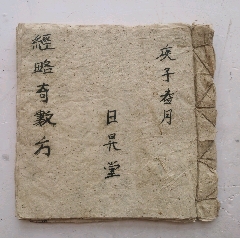 庚子春月
日昇堂
經略奇數方